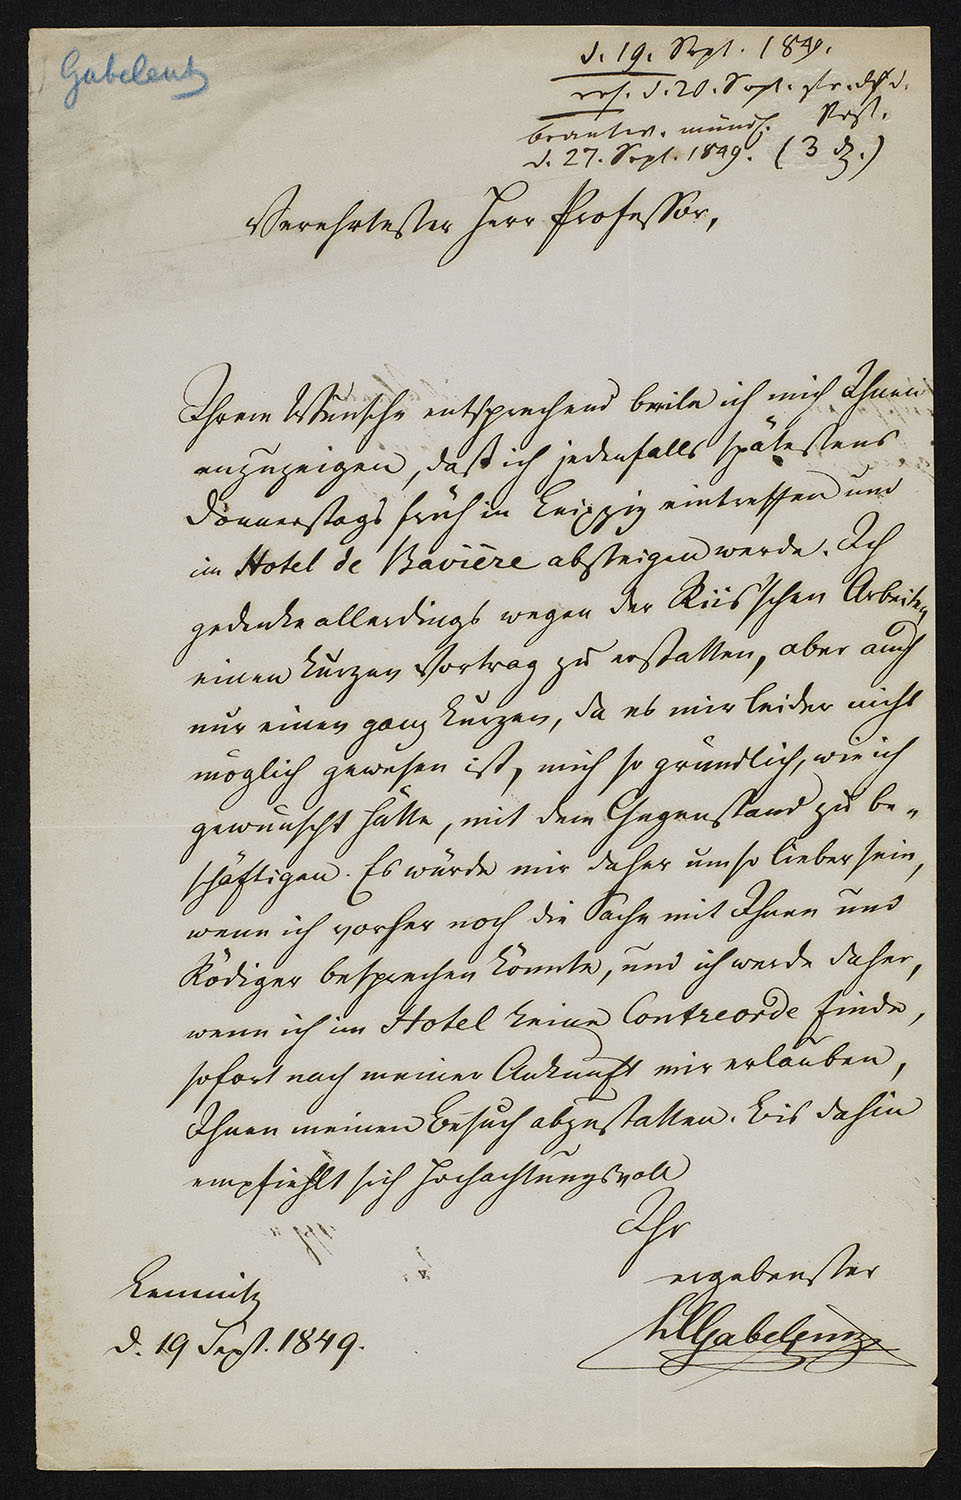 Gabelentz
d. 19. Sept. 1849.
erh. d. 20. Sept.
beantw. mündl. Rest.
d. 27. Sept. 1849. (3 )
Verehrtester Herr Professor,
Ihrem Wunsche entsprechend beeile ich mich Ihnen
anzuzeigen, daß ich jedenfalls spätestens
Donnerstags früh in Leipzig eintreffen und
im Hotel de Bavière absteigen werde. Ich
gedenke allerdings wegen der Riis'schen Arbeiten
einen kurzen Vortrag zu erstatten, aber auch
nur einen ganz kurzen, da es mir leider nicht
möglich gewesen ist, mich so gründlich, wie ich
gewünscht hätte, mit dem Gegenstand zu be-
schäftigen. Es würde mir daher um so lieber sein,
wenn ich vorher noch die Sache mit Ihnen und
Rödiger besprechen könnte, und ich werde daher,
wenn ich im Hotel keine Contreorde finde,
sofort nach meiner Ankunft mir erlauben,
Ihnen meinen Besuch abzustatten. Bis dahin
empfiehlt sich hochachtungsvoll
Ihr
ergebenster
Lemnitz
d. 19 Sept. 1849.
HCGabelentz